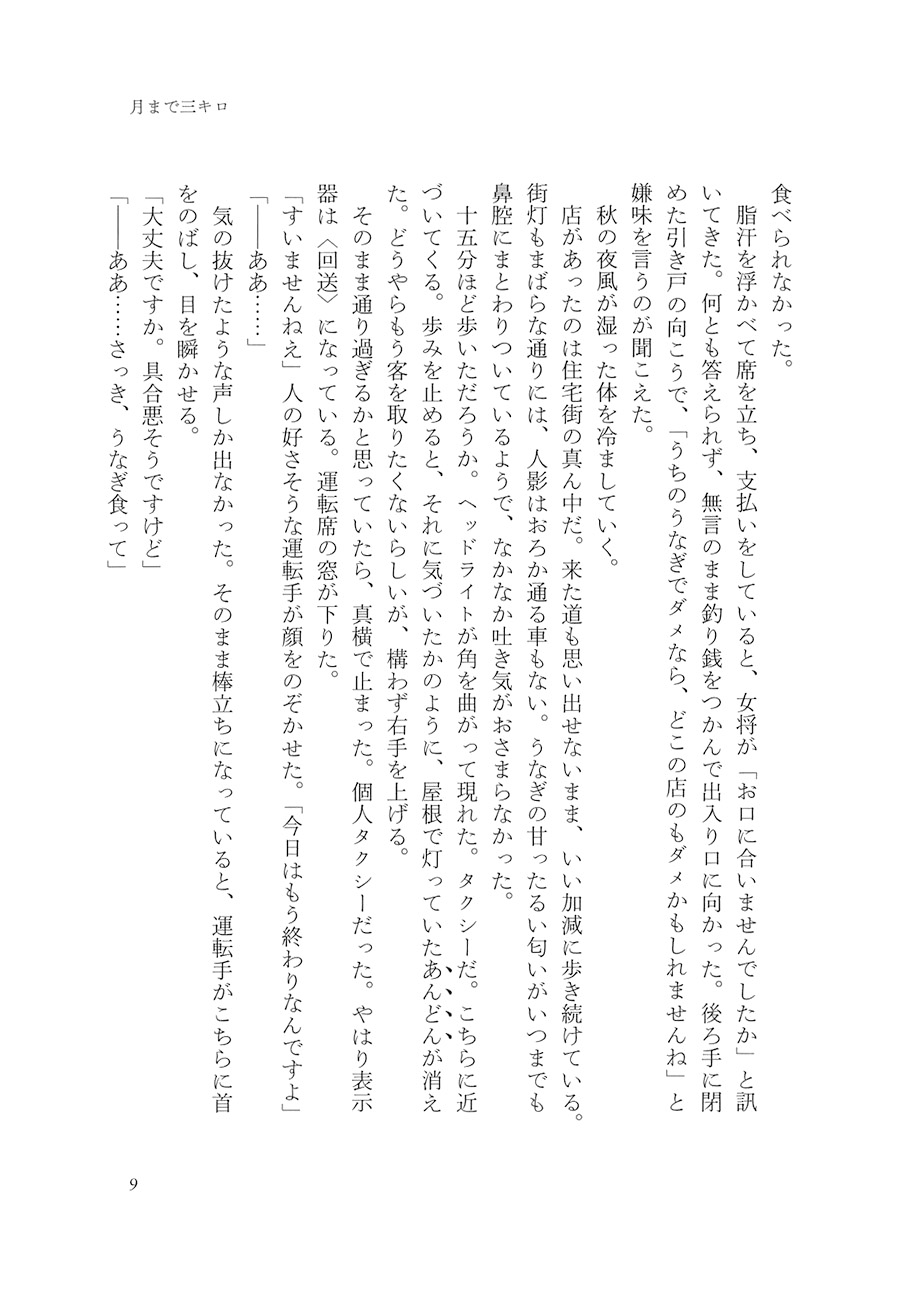 月まで三キロ
食べられなかった。
　脂汗を浮かべて席を立ち、支払いをしていると、女将が「お口に合いませんでしたか」と訊
いてきた。何とも答えられず、無言のまま釣り銭をつかんで出入り口に向かった。後ろ手に閉
めた引き戸の向こうで、「うちのうなぎでダメなら、どこの店のもダメかもしれませんね」と
嫌味を言うのが聞こえた。
　秋の夜風が湿った体を冷ましていく。
　店があったのは住宅街の真ん中だ。来た道も思い出せないまま、いい加減に歩き続けている。
街灯もまばらな通りには、人影はおろか通る車もない。うなぎの甘ったるい匂いがいつまでも
鼻腔にまとわりついているようで、なかなか吐き気がおさまらなかった。
　十五分ほど歩いただろうか。ヘッドライトが角を曲がって現れた。タクシーだ。こちらに近
づいてくる。歩みを止めると、それに気づいたかのように、屋根で灯っていたあんどんが消え
た。どうやらもう客を取りたくないらしいが、構わず右手を上げる。
　そのまま通り過ぎるかと思っていたら、真横で止まった。個人タクシーだった。やはり表示
器は〈回送〉になっている。運転席の窓が下りた。
「すいませんねえ」人の好さそうな運転手が顔をのぞかせた。「今日はもう終わりなんですよ」
「――ああ……」
　気の抜けたような声しか出なかった。そのまま棒立ちになっていると、運転手がこちらに首
をのばし、目を瞬かせる。
「大丈夫ですか。具合悪そうですけど」
「――ああ……さっき、うなぎ食って」
9